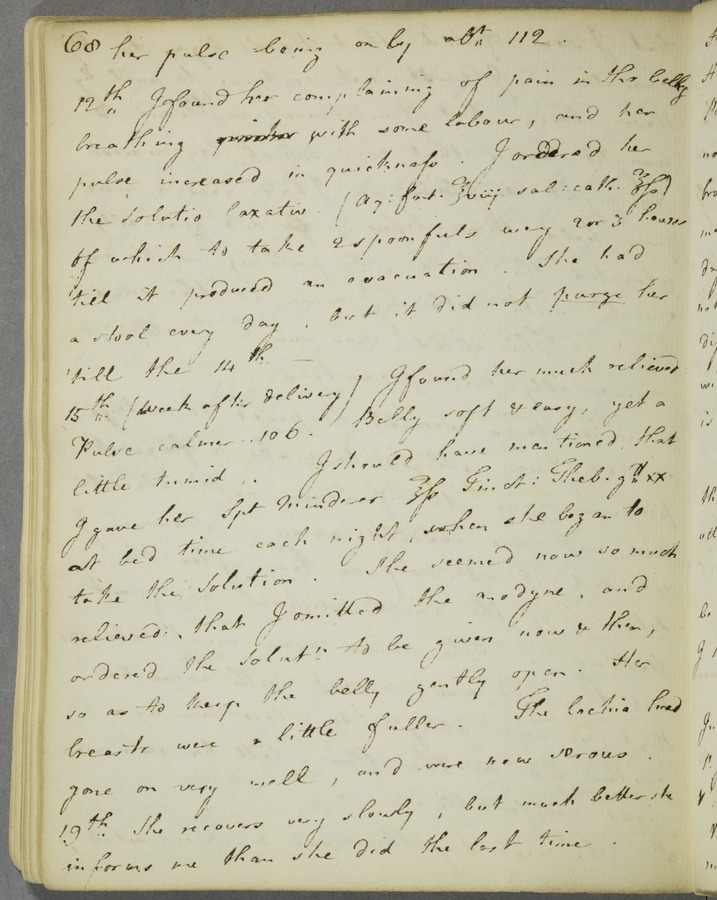 68 her pulse being only abt. 112.
12th. I found her complaining of pain in the belly
breathing with some labour, and her
pulse increased in quickness. I ordered her
the Solutio laxativ. (Aq: font. ℥viij sal: cath. ℥ſs)
of which to take 2 spoonfuls every 2 or 3 hours
'till it produced an evacuation. She had
a stool every day, but it did not purge her
'till the 14th. —
15th. (Week after delivery) I found her much relieved
Pulse calmer. 106. Belly soft & easy, yet a
little tumid. I should have mentioned, that
I gave her Spt Minderer ℥ſs Tinct: Theb. gtt xx
at bed time each night, when she began to
take the Solution. She seemed now so much
relieved, that I omitted the anodyne, and
ordered the Solutn. to be given now & then,
so as to keep the belly gently open. Her
breasts were a little fuller. The lochia had
gone on very well, and were now serous.
19th. She recovers very slowly, but much better she
informs me than she did the last time.